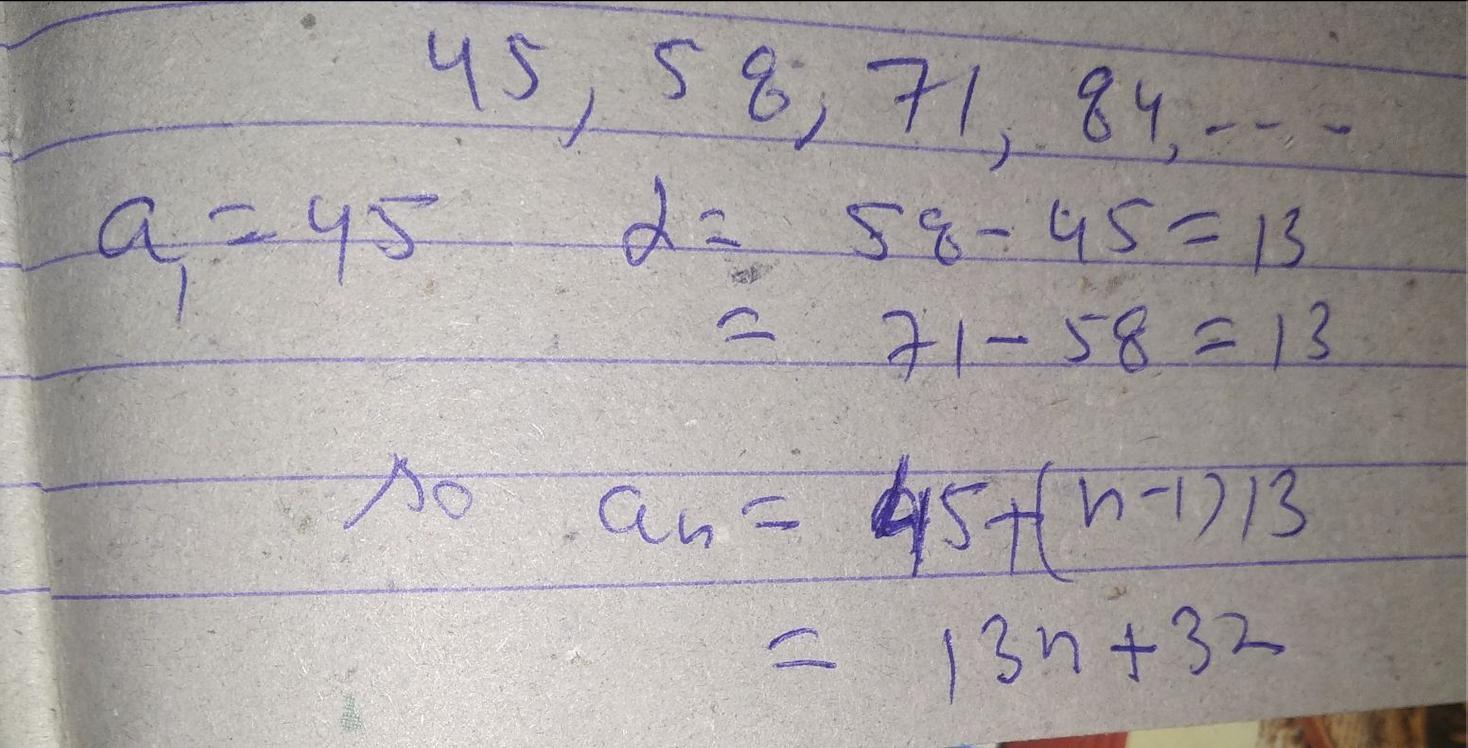 45, 58, 71, 84, ----
a₁ = 45 d = 58 - 45 = 13
= 71 - 58 = 13
so aₙ = 45 + (n-1)13
= 13n + 32